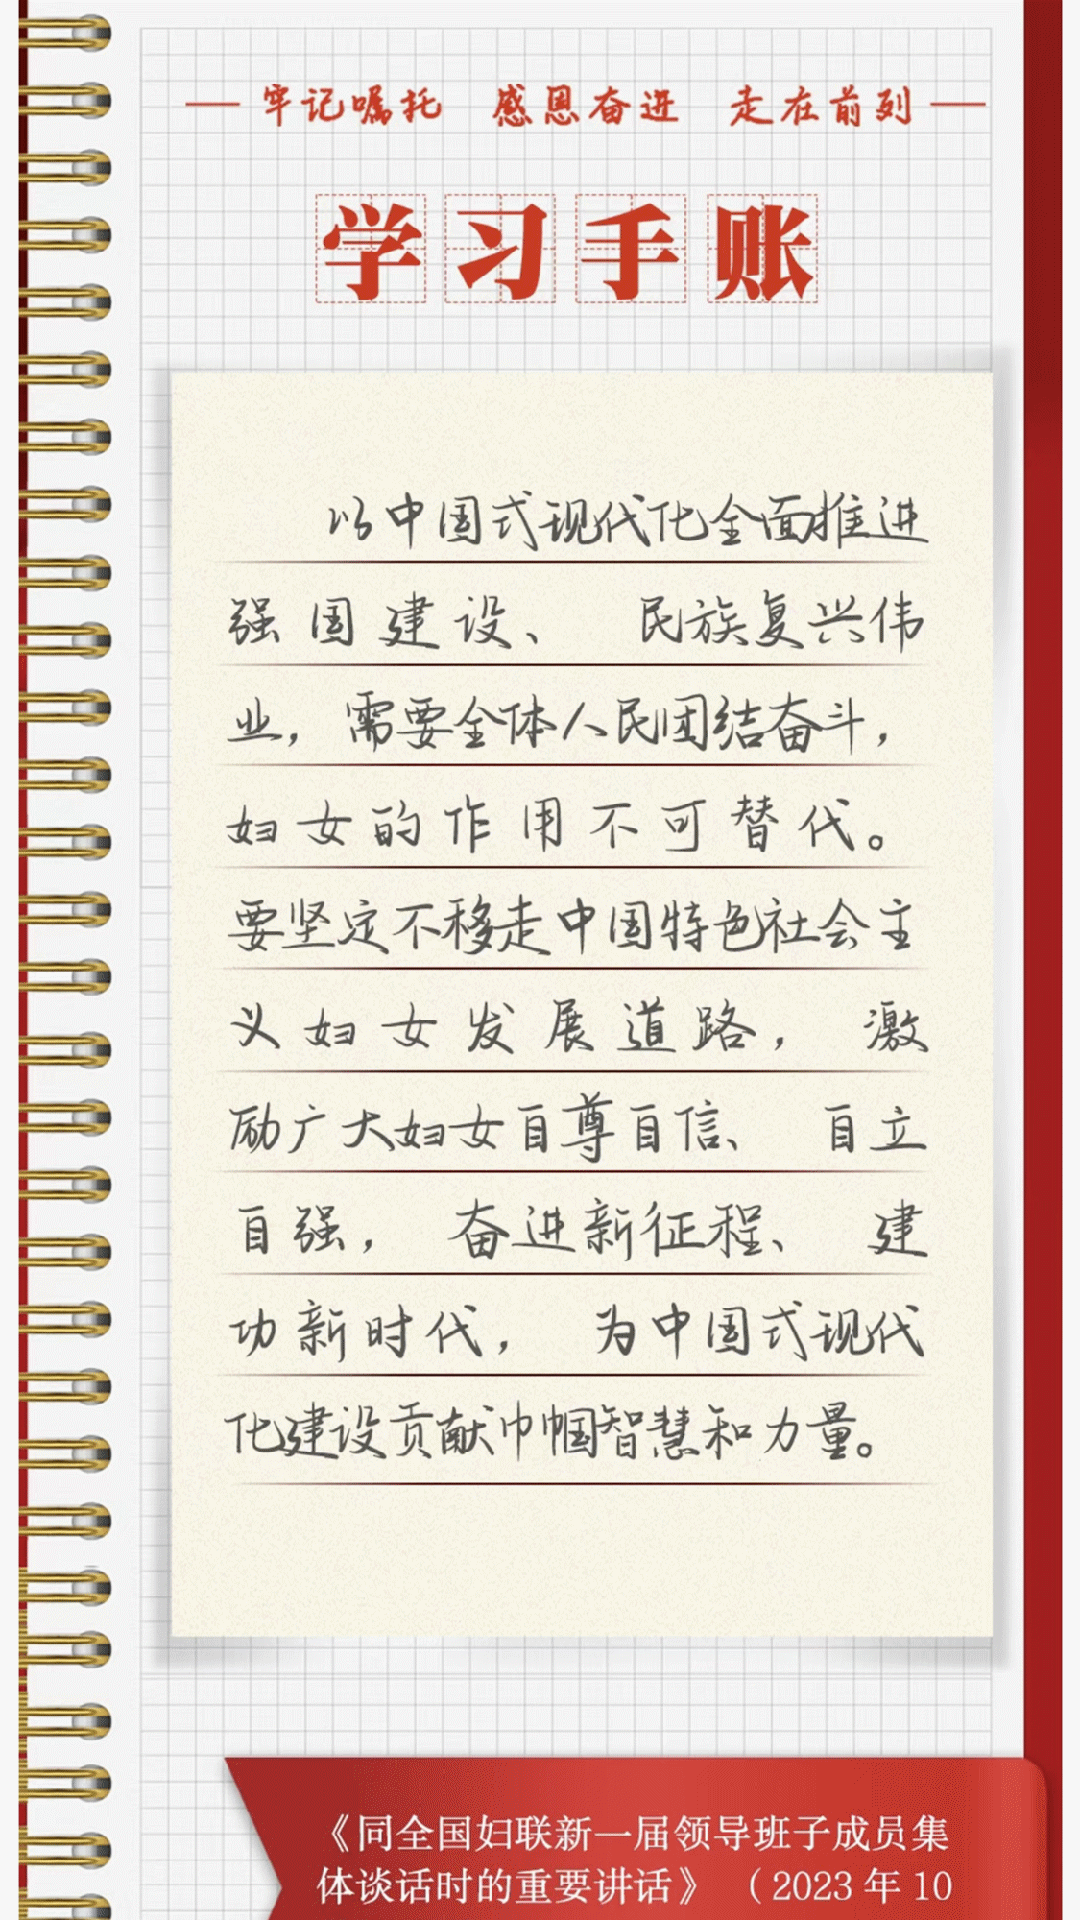 牢记嘱托 感恩奋进 走在前列
学习手账
以中国式现代化全面推进
强国建设、 民族复兴伟
业，需要全体人民团结奋斗，
妇女的作用不可替代。
要坚定不移走中国特色社会主
义妇女发展道路， 激
励广大妇女自尊自信、 自立
自强， 奋进新征程、 建
功新时代， 为中国式现代
化建设贡献巾帼智慧和力量。
《同全国妇联新一届领导班子成员集
体谈话时的重要讲话》 （2023 年 10